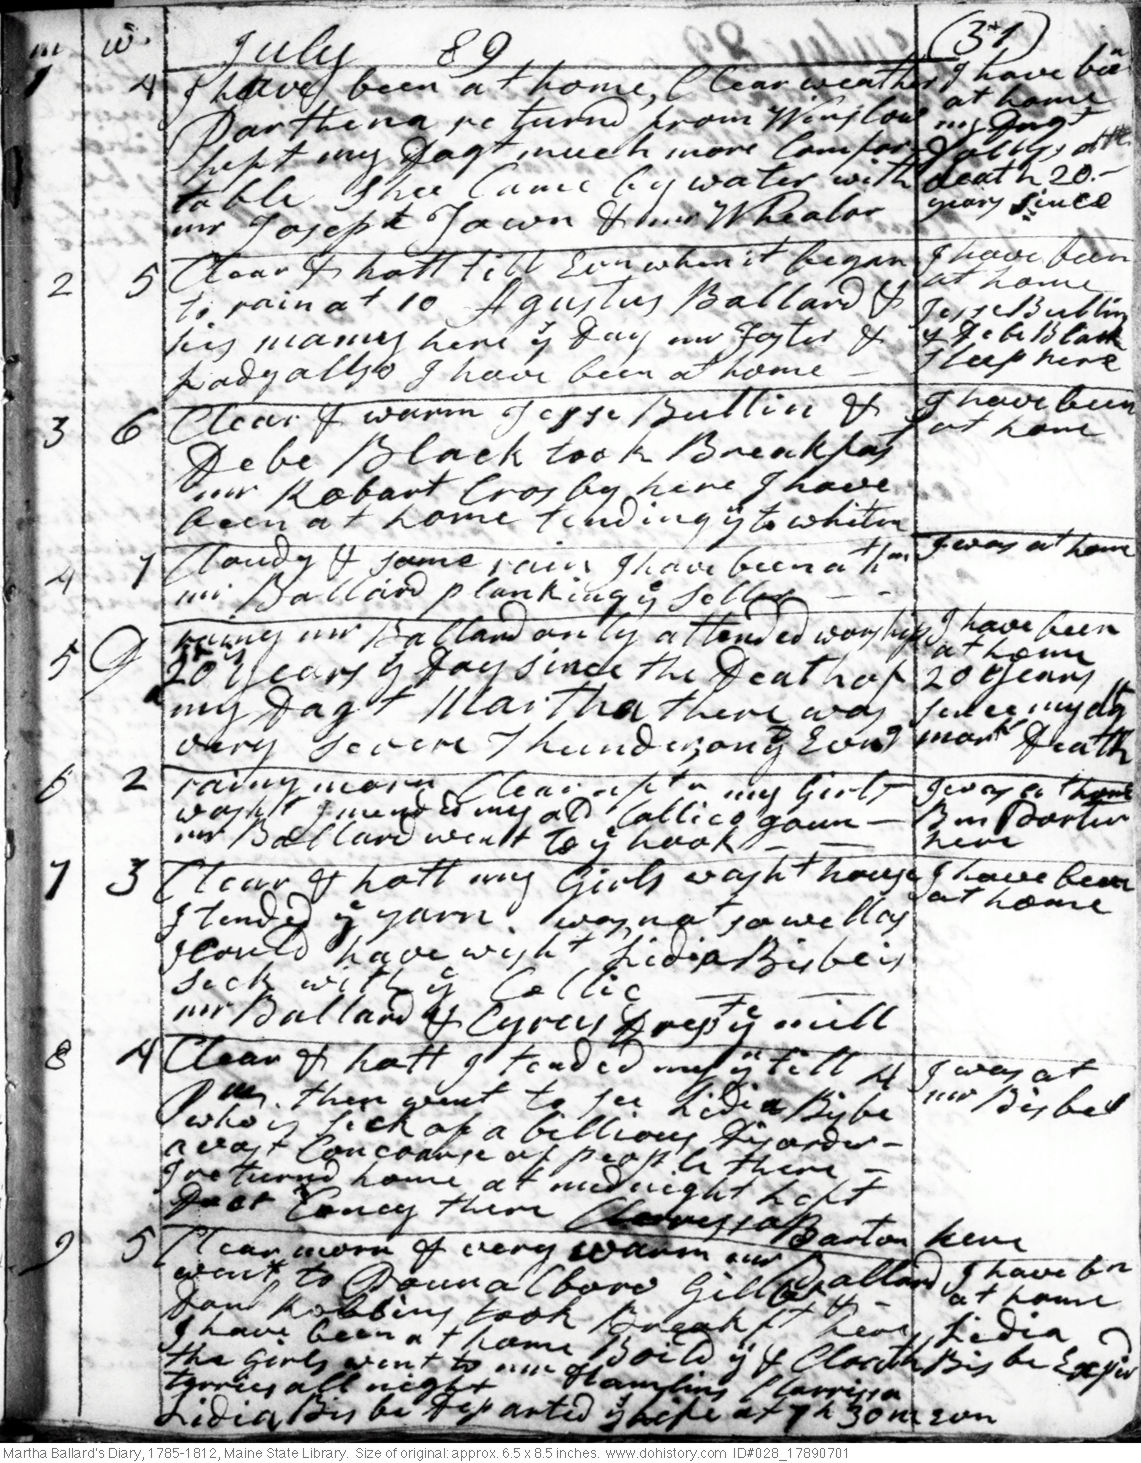 m w. July 89 (31)
1 4 I have been at home, Clear weather
Parthena returnd from Winslow
left my Dagt much more Comfor-
table Shee Came by water with
mr Joseph Town & mr Whealor
I have been
at home
my Dagt
death 20
years since
2 5 Clear & hott till Evn when it began
to rain at 10 Agustus Ballard &
his mamy here ye Day mr Foster &
Lady allso I have been at home
I have been
at home
Jesse Bullin
& Debe Black
sleep here
3 6 Clear & warm Jesse Bullin &
Debe Black took Breakfast
mr Robart Crosby here I have
been at home tending ys to whiten
I have been
at home
4 7 Cloudy & some rain I have been at hm
mr Ballard planking ye Seller
I was at home
5 rainy mr Ballard only attended worship
20 years ys Day since the Death of
my Dagt Martha there was
very severe Thunder, on ye Evng
I have been
at home
20 years
since my dt
Death
6 2 rainy morn Clear aftn my Girls
washt I mended my old Callico goun
mr Ballard went to ye hook
I was at home
Bm Porter
here
7 3 Clear & hott my Girls washt house
I tended ye yarn was not so well as
I Could have wisht Lidia Bisbe is
sick with ye Collic
mr Ballard & Cyrus ye mill
I have been
at home
8 4 Clear & hott I tended my till 4
Pm. then went to see Lidia Bisbe
who is sick of a billious disorder
a vast Concourse of people there
I returnd home at midnight left
Doct Coney there Clarissa Barton here
I was at
mr Bisbes
9 5 Clear morn & very warm mr Ballard
went to Pounalboro Gill &
Danl Robbins took Breakft here
I have been at home Boild ye & Cloath
the Girls went to mr Hamlins Clarrissa
tarries all night
Lidia Bisbe Departed ys life at 7 h 30 m evn
I have bn
at home
Lidia
Bisbe Expird
Martha Ballard's Diary, 1785-1812, Maine State Library. Size of original: approx. 6.5 x 8.5 inches. www.dohistory.com ID#028_17890701